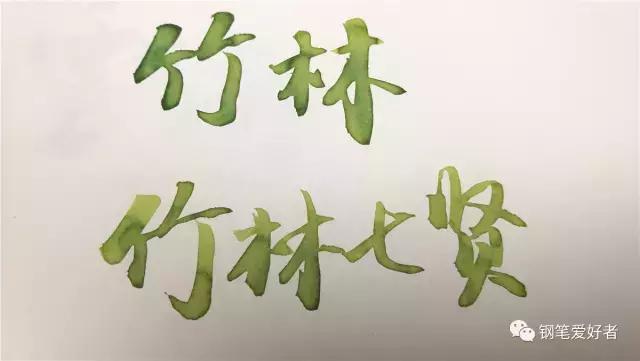 竹林
竹林七贤
钢笔爱好者